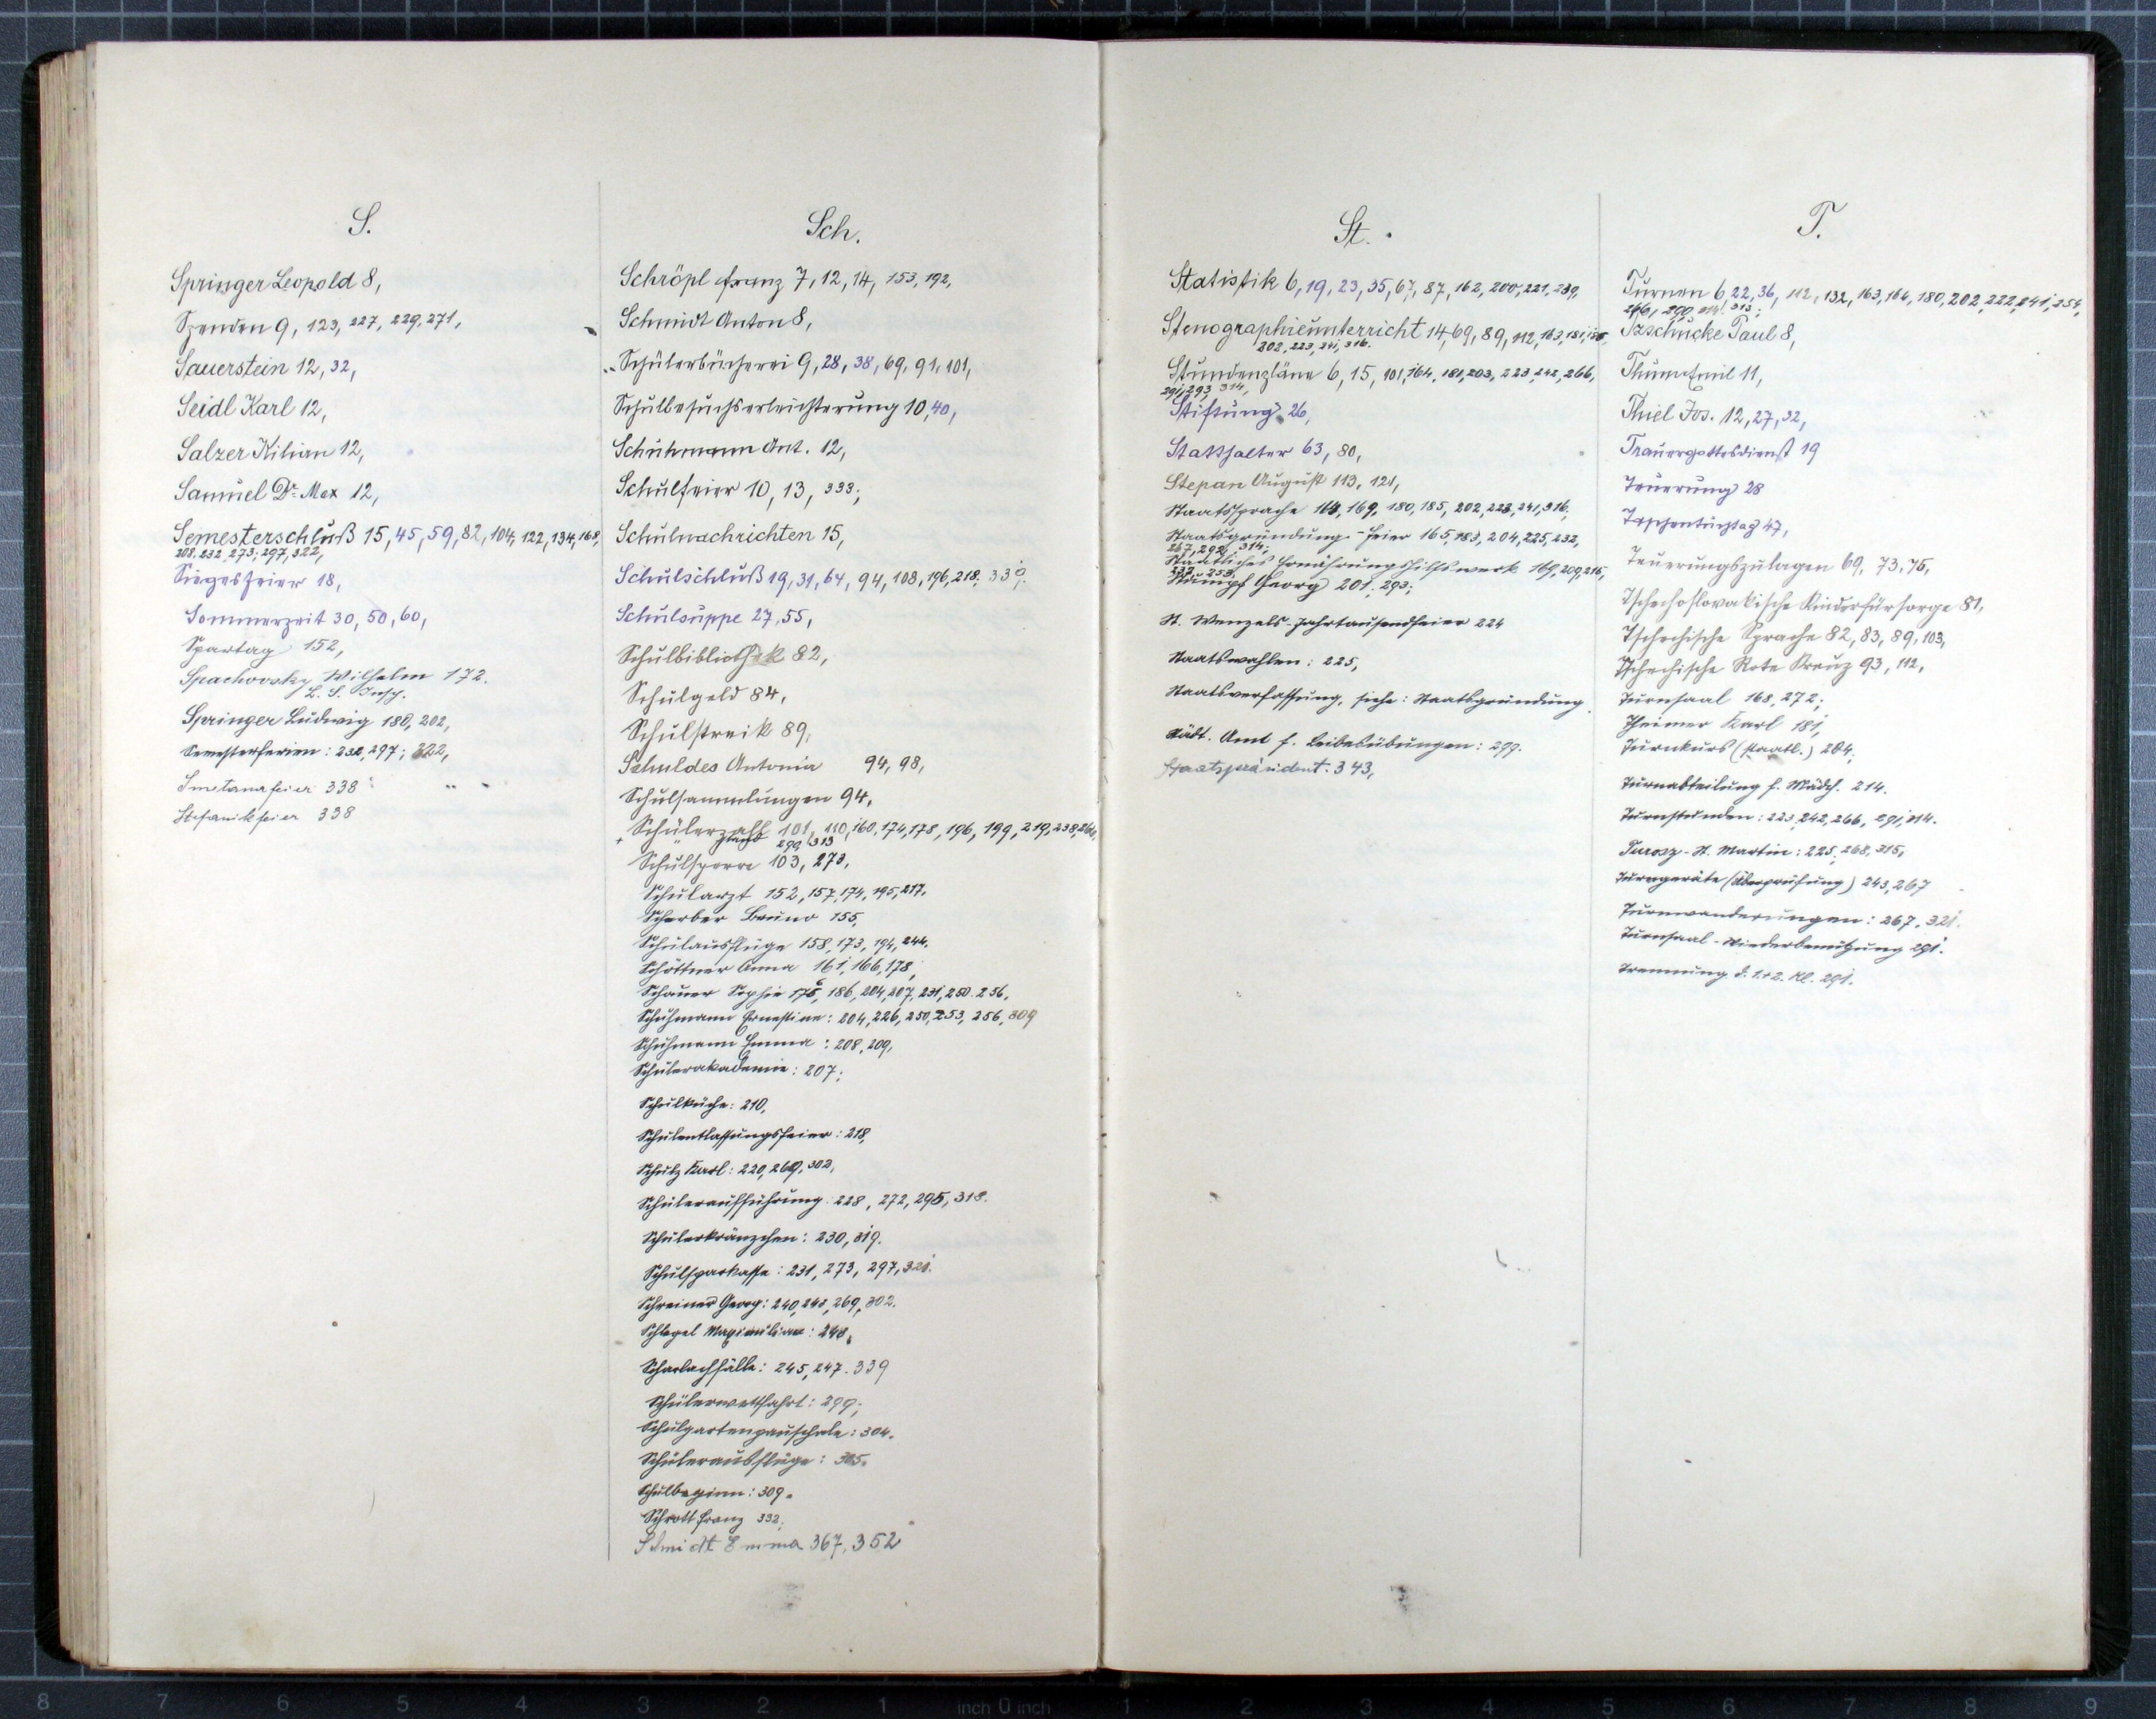 S.
Springer Leopold 8,
Spenden 9, 123, 227, 229, 271,
Sauerstein 12, 32,
Seidl Karl 12,
Salzer Kilian 12,
Samuel Dr. Max 12,
Semesterschluß 15, 45, 59, 82, 104, 122, 134, 168,
208, 232, 273, 297, 322,
Siegesfeier 18,
Sommerzeit 30, 50, 60,
Spartag 152,
Spachovsky Wilhelm 172.
L. S. Insp.
Springer Ludwig 180, 202,
Semesterferien: 232, 297; 322,
Smetanafeier 338
Stefanikfeier 338
Sch.
Schröpl Franz 7, 12, 14, 153, 192,
Schmidt Anton 8,
Schülerbücherei 9, 28, 38, 69, 91, 101,
Schulbesuchserleichterung 10, 40,
Schuhmann Ant. 12,
Schulfeier 10, 13, 333;
Schulnachrichten 15,
Schulschluß 19, 31, 64, 94, 108, 196, 218, 339.
Schulsuppe 27, 55,
Schulbibliothek 82,
Schulgeld 84,
Schulstreik 89,
Schuldes Antonia 94, 98,
Schulsammlungen 94,
Schülerzahl 101, 110, 160, 174, 178, 196, 199, 219, 238, 260,
" stand 290, 313
Schulsperre 103, 273,
Schularzt 152, 157, 174, 195, 217.
Scherber Bruno 155,
Schulausflüge 158, 173, 194, 244.
Schöttner Anna 161, 166, 178,
Schauer Sophie 178, 186, 204, 207, 231, 250. 256.
Schuhmann Ernestine: 204, 226, 250, 253, 256, 309
Schuhmann Emma: 208, 209,
Schülerakademie: 207;
Schulküche: 210,
Schulentlassungsfeier: 218,
Schulz Karl: 220, 269, 302,
Schüleraufführung 228, 272, 295, 318.
Schülerkränzchen: 230, 319.
Schulsparkasse: 231, 273, 297, 321.
Schreiner Georg: 240, 243, 269, 302.
Schlegel Maximilian: 248,
Scharlachfälle: 245, 247. 339
Schülerwettfahrt: 299;
Schulgartenpauschale: 304.
Schülerausflüge: 305.
Schulbeginn: 309.
Schrott Franz 332,
Schmidt Emma 367, 352
St.
Statistik 6, 19, 23, 35, 67, 87, 162, 200, 221, 239,
Stenographieunterricht 14, 69, 89, 112, 163, 181, 186,
202, 223, 241, 316.
Stundenpläne 6, 15, 101, 164, 181, 203, 223, 242, 266,
291, 293, 314,
Stiftung 26,
Statthalter 63, 80,
Stepan August 113, 121,
Staatssprache 114, 169, 180, 185, 202, 223, 241, 316,
Staatsgründung-feier 165, 183, 204, 225, 232,
267, 292, 314;
Staatliches Ernährungshilfswerk 169, 209, 216,
232, 253,
Stumpf Georg 201, 293;
St. Wenzels-Jahrtausendfeier 224
Staatswahlen: 225,
Staatsverfassung, siehe: Staatsgründung.
Städt. Amt f. Leibesübungen: 299.
Staatspräsident: 343,
T.
Turnen 6, 22, 36, 112, 132, 163, 164, 180, 202, 222, 241, 254,
266, 290, 314, 315;
Tzschucke Paul 8,
Thum Emil 11,
Thiel Jos. 12, 27, 32,
Trauergottesdienst 19
Teuerung 28
47,
Teuerungszulagen 69, 73, 75,
Tschechoslovakische Kinderfürsorge 81,
Tschechische Sprache 82, 83, 89, 103,
Tschechische Rote Kreuz 93, 112,
Turnsaal 168, 272,
Theimer Karl 181,
Turnkurs (staatl.) 204,
Turnabteilung f. Mädch. 214.
Turnstunden: 223, 242, 266, 291, 314.
Turosz-St. Martin: 225, 268, 315,
Turngeräte (Überprüfung) 243, 267
Turnwanderungen: 267, 321.
Turnsaal-Wiederbenützung 291.
Trennung d. 1.+2. Kl. 291.
8 7 6 5 4 3 2 1 inch 0 inch 1 2 3 4 5 6 7 8 9